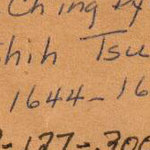 Ching Dy
hih Tsu
1644-16
-127-300